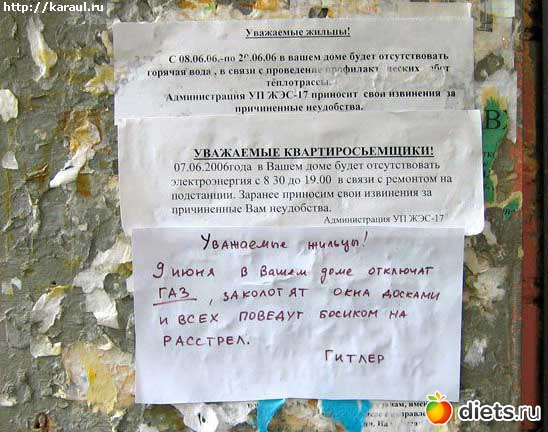 http://karaul.ru
Уважаемые жильцы!
С 08.06.06.-по 29.06.06 в вашем доме будет отсутствовать
горячая вода , в связи с проведение профилакт ческих работ
теплотрассы.
Администрация УП ЖЭС-17 приносит свои извинения за
причиненные неудобства.
УВАЖАЕМЫЕ КВАРТИРОСЬЕМЩИКИ!
07.06.2006года в Вашем доме будет отсутствовать
электроэнергия с 8 30 до 19.00 в связи с ремонтом на
подстанции. Заранее приносим свои извинения за
причиненные Вам неудобства.
Администрация УП ЖЭС-17
Уважаемые жильцы!
9 июня в Вашем доме отключат
ГАЗ, заколотят окна досками
и всех поведут босиком на
расстрел.
Гитлер
diets.ru